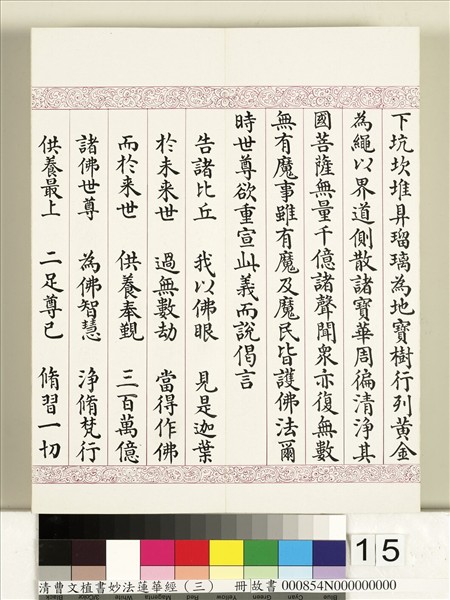 下坑坎堆阜瑠璃為地寶樹行列黃金
為繩以界道側散諸寶華周徧清淨其
國菩薩無量千億諸聲聞衆亦復無數
無有魔事雖有魔及魔民皆護佛法爾
時世尊欲重宣此義而說偈言
告諸比丘 我以佛眼 見是迦葉
於未來世 過無數劫 當得作佛
而於來世 供養奉覲 三百萬億
諸佛世尊 為佛智慧 淨脩梵行
供養最上 二足尊已 脩習一切
15
清曹文植書妙法蓮華經（三） 冊 故書 000854N000000000